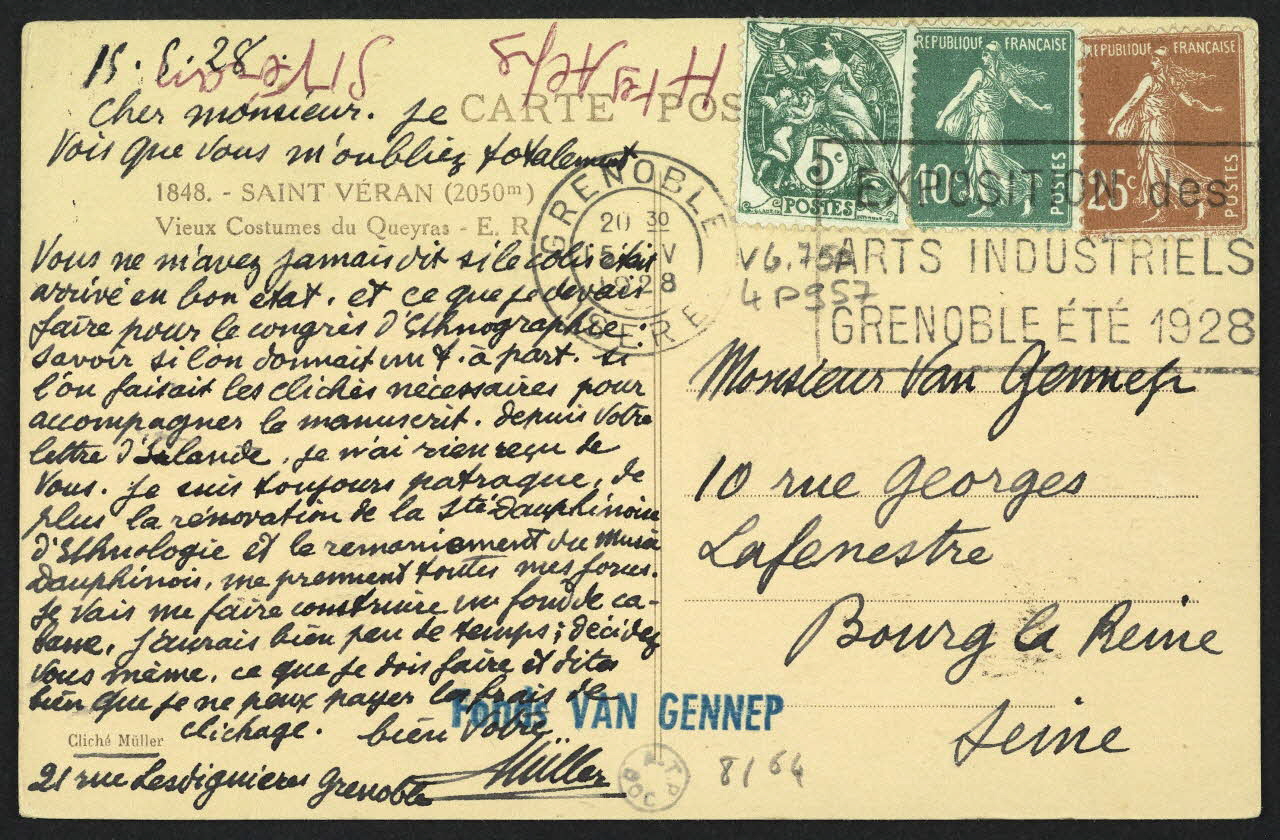 15. 5. 28
Cher monsieur. Je
Vois que vous m'oubliez totalement
CARTE POS
1848. - SAINT VÉRAN (2050m)
Vieux Costumes du Queyras - E. R.
Vous ne m'avez jamais dit si le colis était
arrivé en bon état. et ce que je devais
faire pour le congrès d'Ethnographie:
savoir si l'on donnait un t. à part. si
l'on faisait les clichés nécessaires pour
accompagner le manuscrit. depuis votre
lettre d'Islande, je n'ai rien reçu de
vous. Je suis toujours patraque, de
plus la rénovation de la Sté dauphinoise
d'Ethnologie et le remaniement du Musée
Dauphinois, me prennent toutes mes forces.
Je vais me faire construire un fond de ca-
bane, j'aurais bien peu de temps; décidez
vous même, ce que je dois faire et dites
bien que je ne peux payer les frais de
clichage. bien votre
Müller
Cliché Müller
21 rue Lesdiguières Grenoble
GRENOBLE
20 30
1928
ISERE
5c
POSTES
REPUBLIQUE FRANÇAISE
10c
POSTES
REPUBLIQUE FRANÇAISE
25c
POSTES
EXPOSITION des
ARTS INDUSTRIELS
GRENOBLE ÉTÉ 1928
4P357
Monsieur Van Gennep
10 rue Georges
Lafenestre
Bourg la Reine
Seine
Fonds VAN GENNEP
A.T.P
DOC
8/64